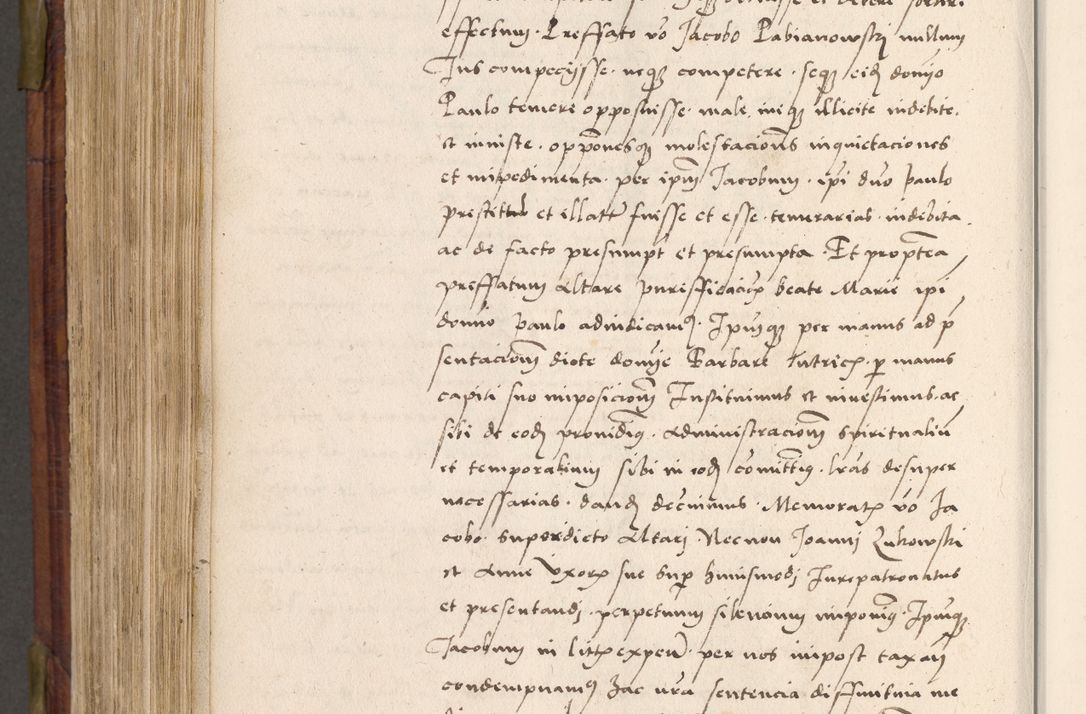 effectum. Preffato vo Jacobo Pabianowskj nullum
Jus competijsse neq competere seq eid domino
Paulo temere opposuisse male iniq illicite indebite
et iniuste opponesq molestacions inquietaciones
et impedimenta per ipm Jacobum ipi dno paulo
prestitas et illatas fuisse et esse temerarias indebita
ac de facto presumpt et presumpta Et proptea
preffatum altare purifficacois beate Marie ipi
domino paulo adiudicamus Ipumq per manus ad p
sentacionem dicte domine Barbare tutricis p manus
capiti suo imposicionem Instituimus et inuestimus ac
sibi de eod prouidimus administracionem spiritualium
et temporalium sibi in eod comittimus lras desuper
necessarias dand decernimus Memorato vo Ja
cobo superdicto altari Necnon Joannj Zukowski
et Anne vxoris sue sup huiusmodj Jurepatronatus
et presentandj perpetuum silencium imponimus Ipumq
Jacobum in litis expen per nos impost taxan
condempnamus hac nra sentencia diffinitiua me